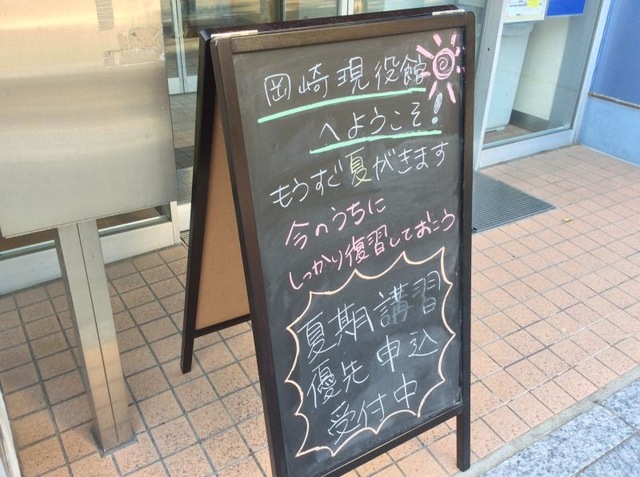 岡崎現役館
へようこそ!
もうすぐ夏がきます
今のうちに
しっかり復習しておこう
夏期講習
優先申込
受付中